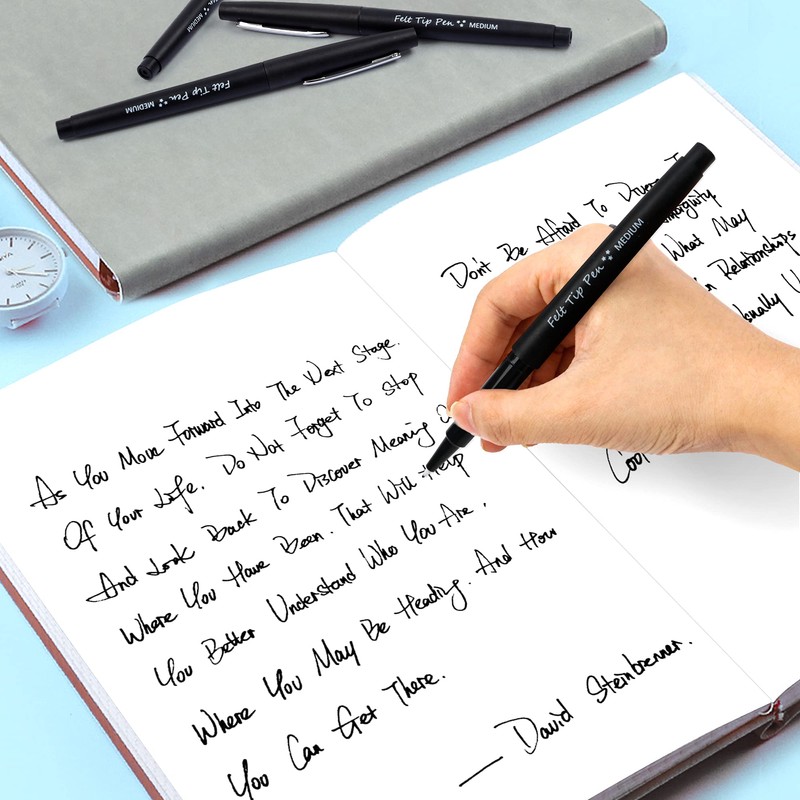 Felt Tip Pen MEDIUM
Felt Tip Pen MEDIUM
Felt Tip Pen MEDIUM
As You Move Forward Into The Next Stage.
Of Your Life. Do Not Forget To Stop
And Look Back To Discover Meaning
Where You Have Been. That Will Help
You Better Understand Who You Are,
Where You May Be Heading. And How
You Can Get There.
— David Steinbrenner.
Don't Be Afraid To
What May
Relationships